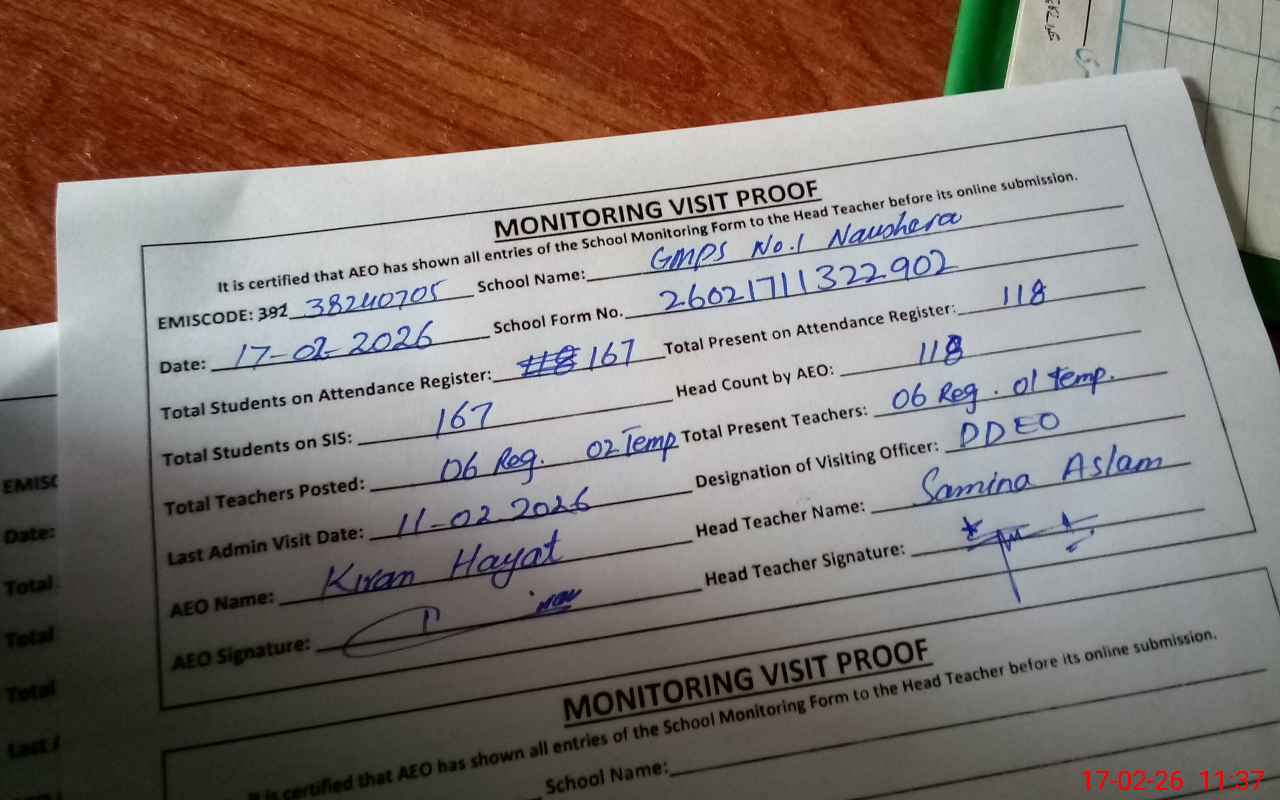 MONITORING VISIT PROOF
It is certified that AEO has shown all entries of the School Monitoring Form to the Head Teacher before its online submission.
EMISCODE: 392 38240705 School Name: GMPS No.1 Naushera
Date: 17-02-2026 School Form No. 26021711322902
Total Students on Attendance Register: 167 Total Present on Attendance Register: 118
Total Students on SIS: 167 Head Count by AEO: 118
Total Teachers Posted: 06 Reg. 02 Temp Total Present Teachers: 06 Reg. 01 temp.
Last Admin Visit Date: 11-02-2026 Designation of Visiting Officer: DDEO
AEO Name: Kiran Hayat Head Teacher Name: Samina Aslam
AEO Signature: Head Teacher Signature:
MONITORING VISIT PROOF
It is certified that AEO has shown all entries of the School Monitoring Form to the Head Teacher before its online submission.
School Name:
EMISC
Date:
Total
Total
Total
Last
17-02-26 11:37